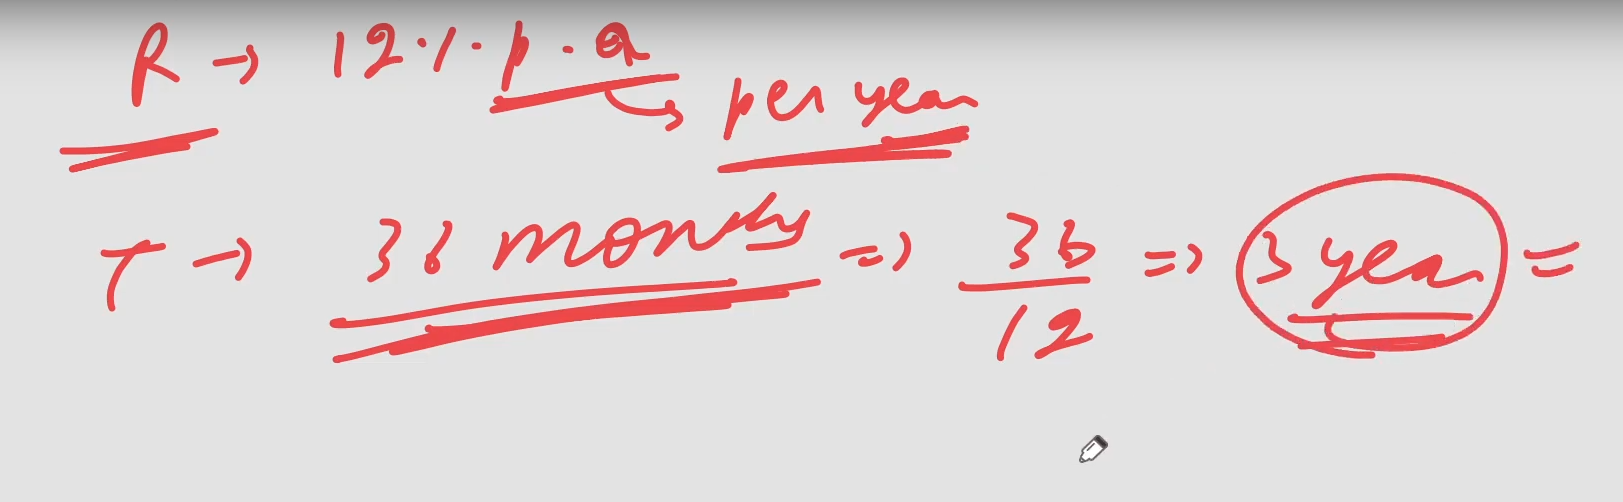 R → 12% p.a → per year
T → 36 months ⇒ 36/12 ⇒ 3 year =